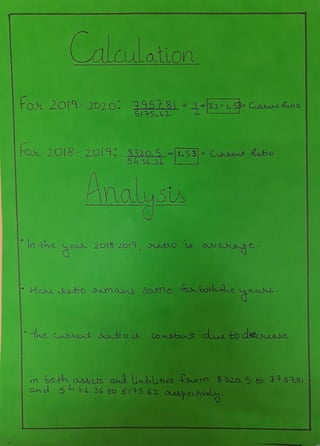 Calculation
For 2019-2020: 7957.81 = 3 = 32 · 1.53 = Current Ratio
5175.62 2
For 2018-2019: 8320.5 = 1.53 = Current Ratio
5436.36
Analysis
• In the year 2018-2019, ratio is average.
• Here ratio remains same for both the years.
• The current ratio is constant due to decrease
in both assets and liablities from 8320.5 to 7957.81
and 5436.36 to 5175.62 respectively.